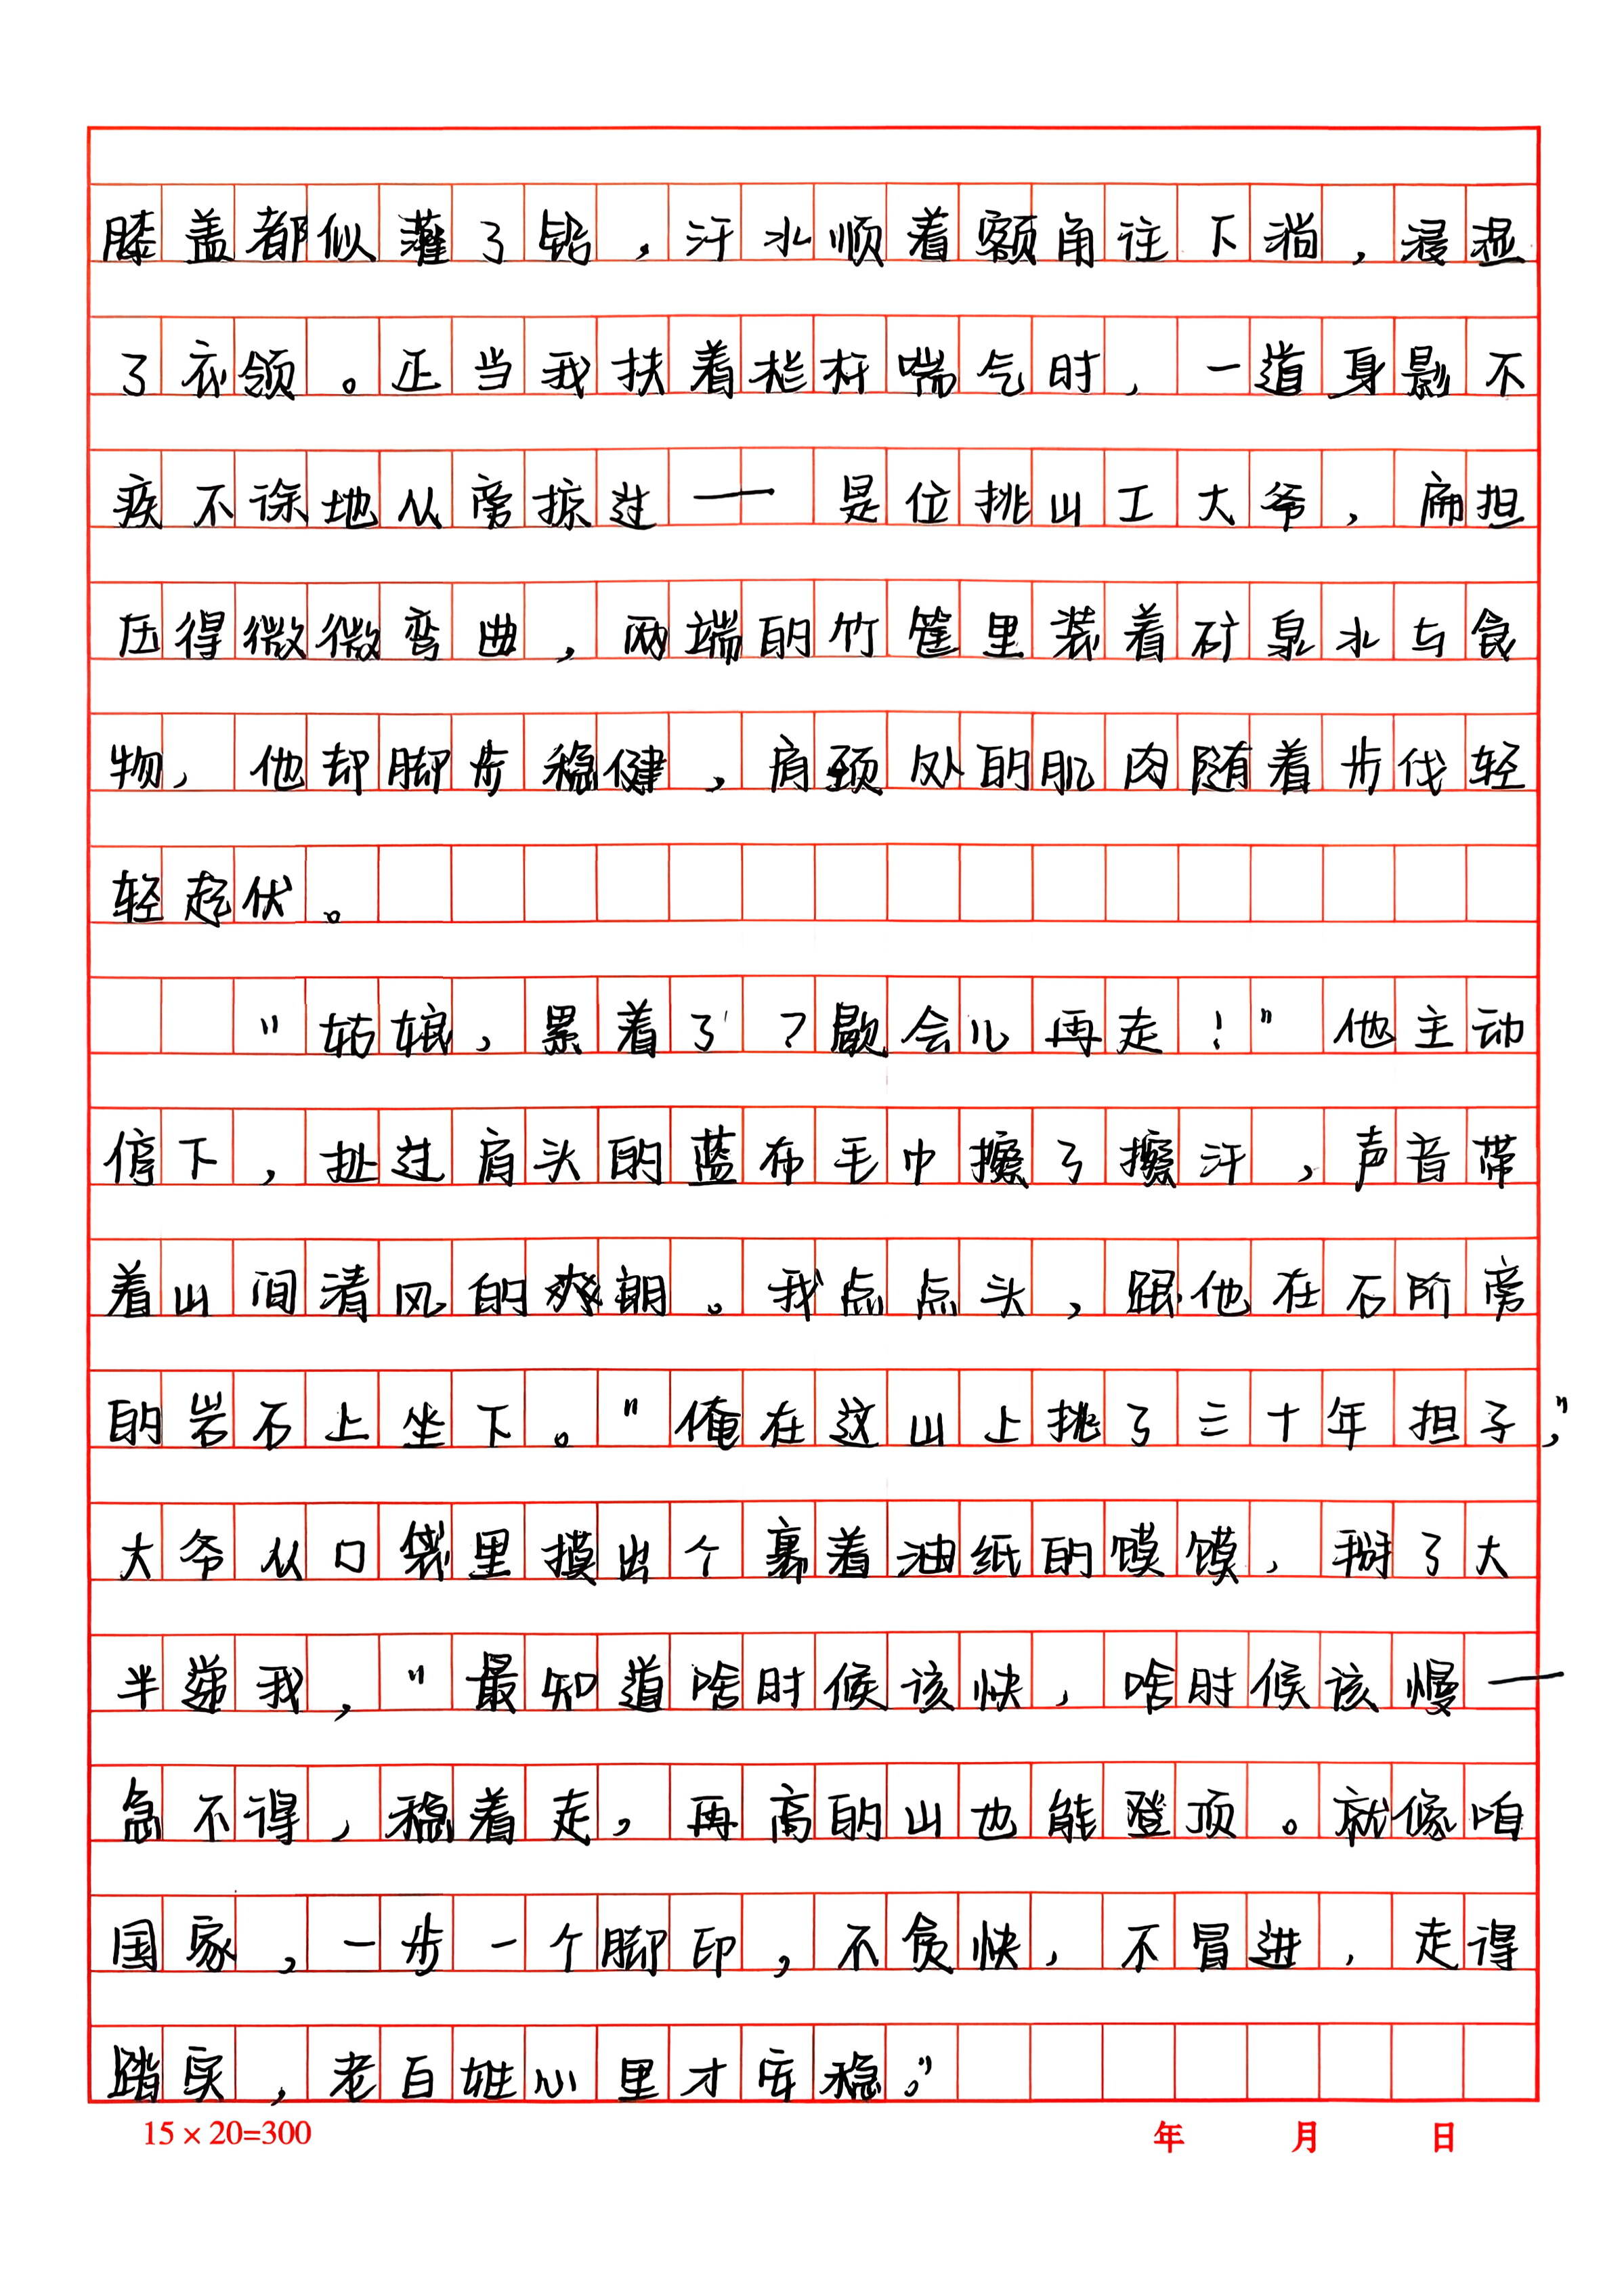 膝盖都似灌了铅，汗水顺着额角往下淌，浸湿
了衣领。正当我扶着栏杆喘气时，一道身影不
疾不徐地从旁掠过——是位挑山工大爷，扁担
压得微微弯曲，两端的竹筐里装着矿泉水与食
物，他却脚步稳健，肩颈处的肌肉随着步伐轻
轻起伏。
“姑娘，累着了？歇会儿再走！”他主动
停下，扯过肩头的蓝布毛巾擦了擦汗，声音带
着山间清风的爽朗。我点点头，跟他在石阶旁
的岩石上坐下。“俺在这山上挑了三十年担子，”
大爷从口袋里摸出个裹着油纸的馍馍，掰了大
半递我，“最知道啥时候该快，啥时候该慢——
急不得，稳着走，再高的山也能登顶。就像咱
国家，一步一个脚印，不贪快，不冒进，走得
踏实，老百姓心里才安稳。”
15×20=300 年 月 日